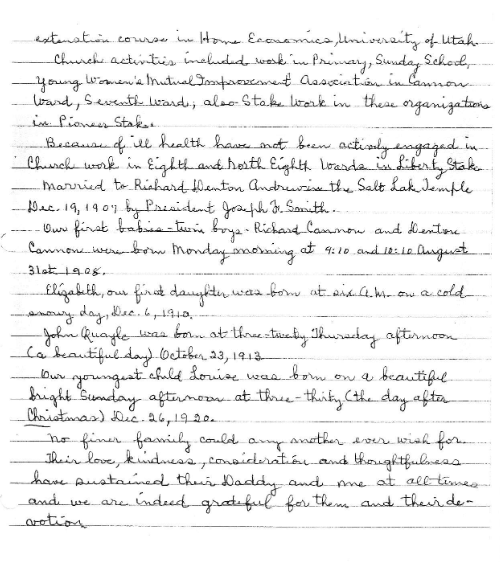 extenstion course in Home Economics, University of Utah.
Church activities included work in Primary, Sunday School,
Young Women's Mutual Improvement Association in Cannon
Ward, Seventh Ward, also Stake Work in these organizations
in Pioneer Stake.
Because of ill health have not been actively engaged in
Church work in Eighth and North Eighth Wards in Liberty Stak
Married to Richard Denton Andrew in the Salt Lak Temple
Dec. 19, 1907 by President Joseph F. Smith.
Our first babies - twin boys - Richard Cannon and Denton
Cannon were born Monday morning at 9:10 and 10:10 August
31st 1908.
Elizabeth, our first daughter was born at six A.M. on a cold
snowy day, Dec. 6, 1910.
John Quayle was born at three-twenty Thursday afternoon
(a beautiful day) October 23, 1913
Our youngest child Louise was born on a beautiful
bright Sunday afternoon at three-thirty (the day after
Christmas) Dec. 26, 1920.
No finer family could any mother ever wish for.
Their love, kindness, consideration and thoughtfulness
have sustained their Daddy and me at all times
and we are indeed grateful for them and their de-
votion